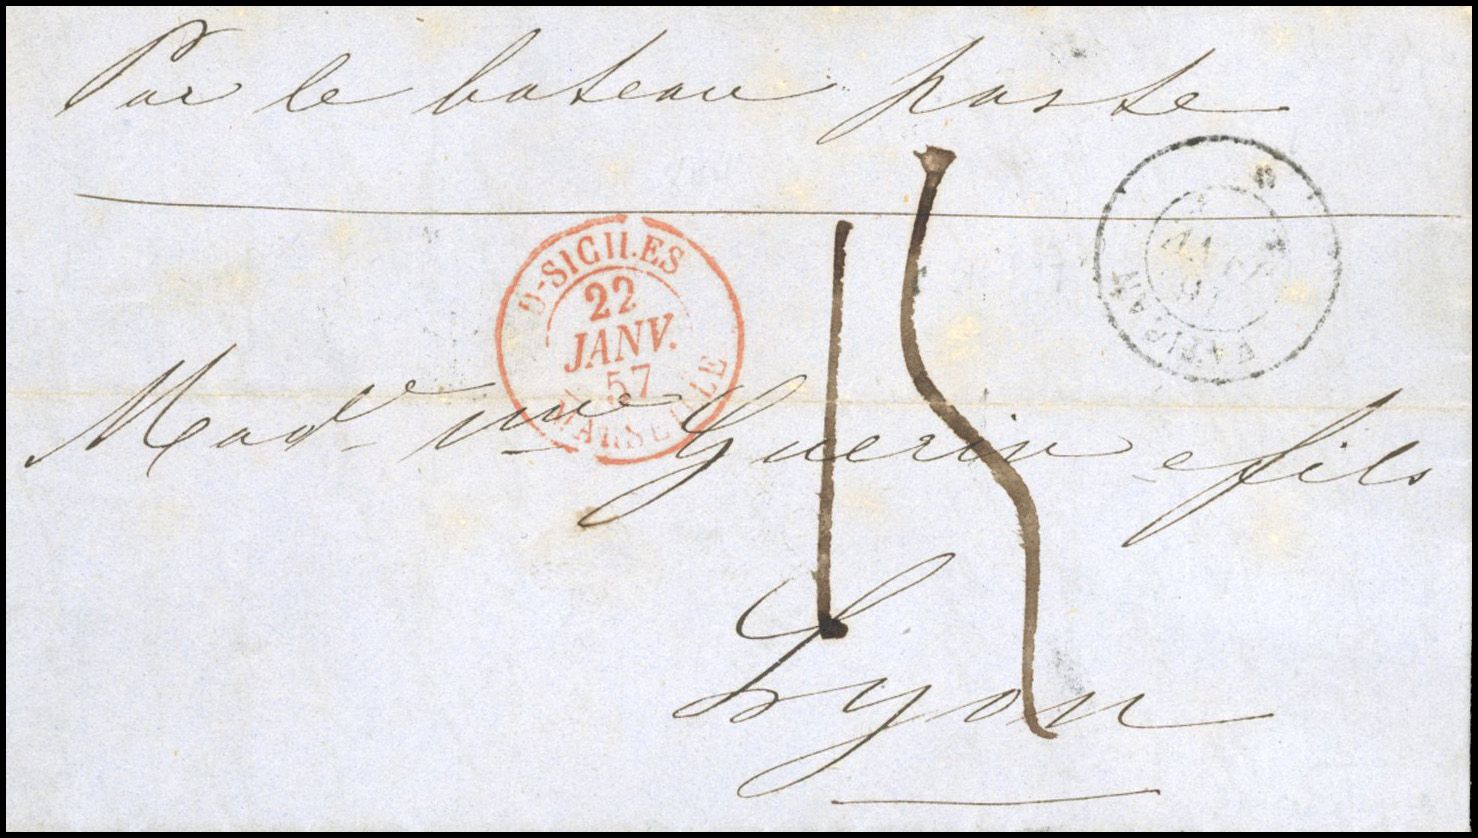 Par le bateau poste
D-SICILES
22
JANV.
57
MARSEILLE
15
VATICAN
Mad vve Guerin e fils
Lyon